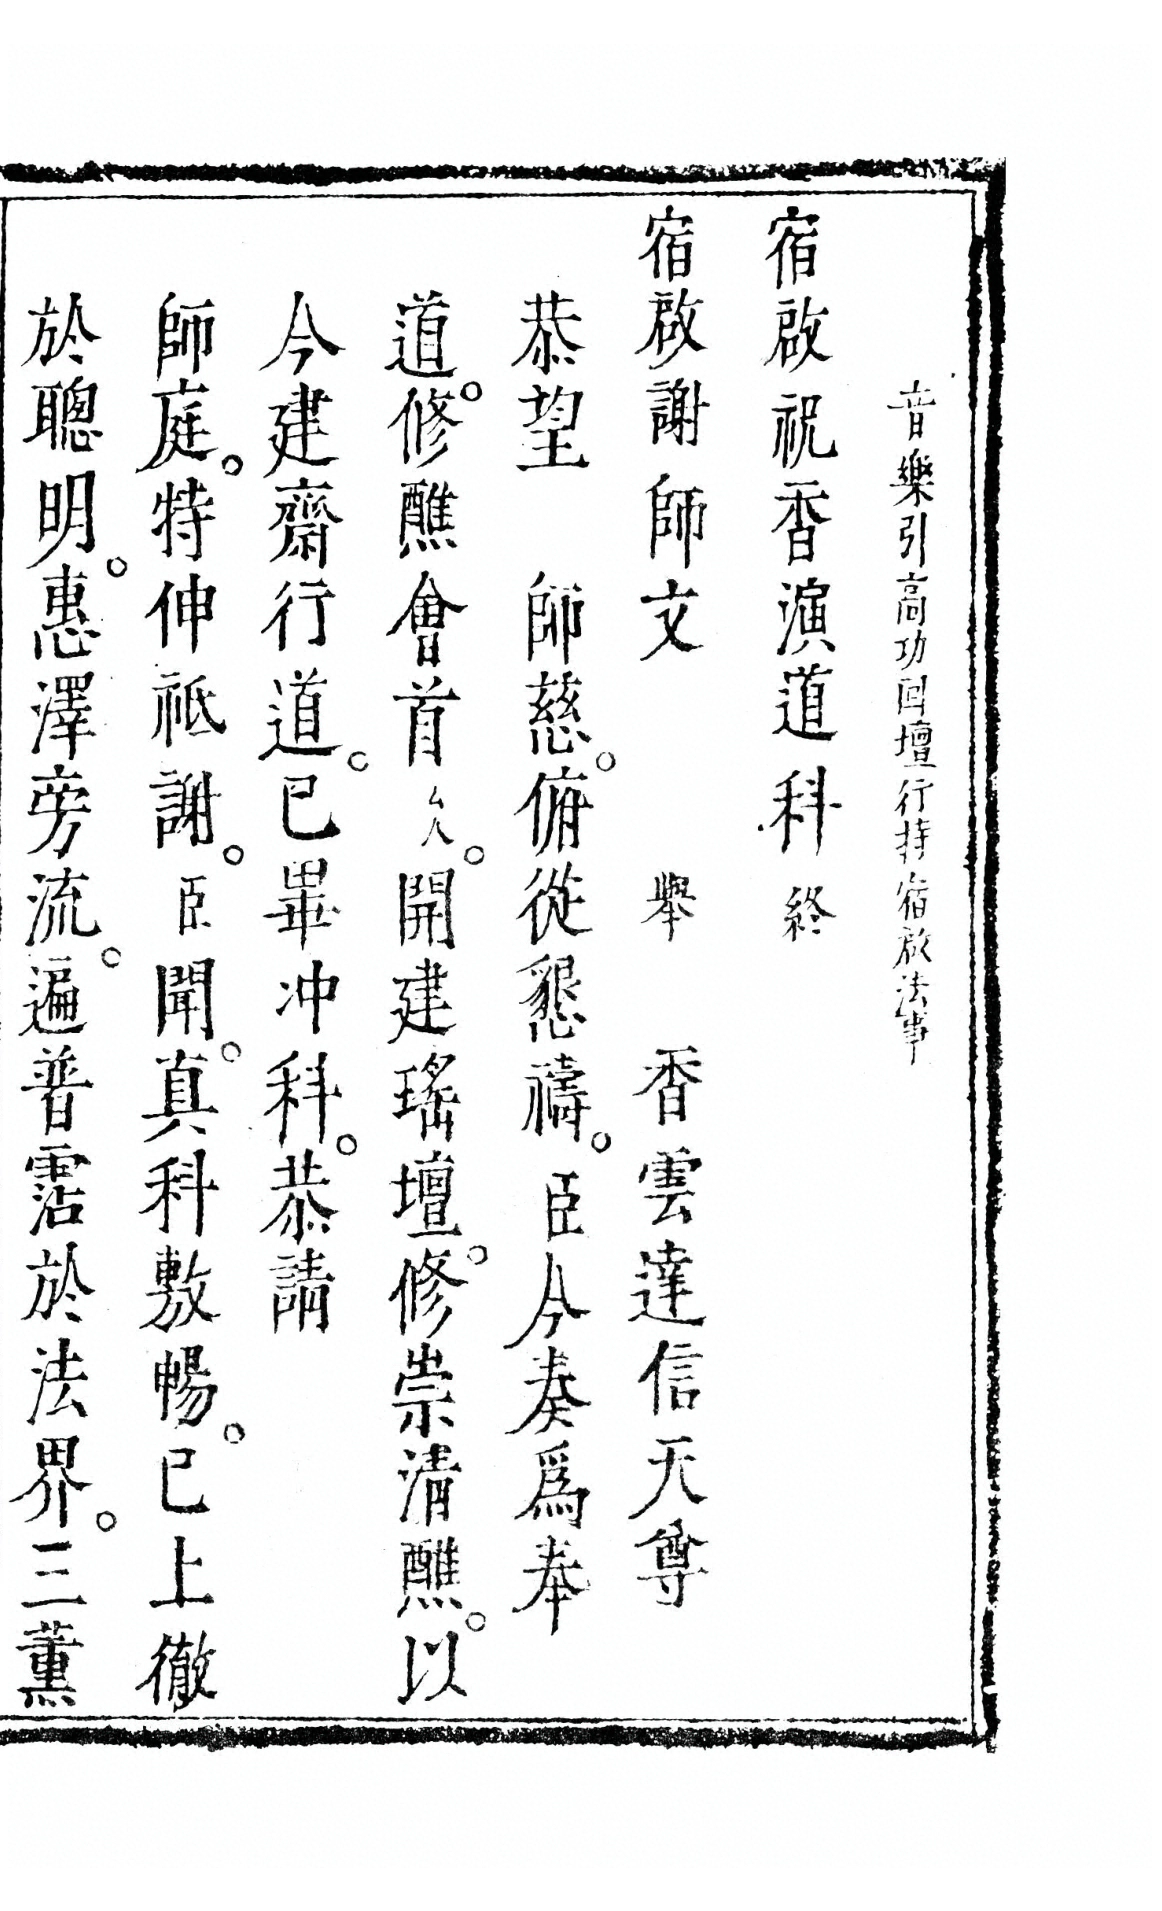 音樂引高功回壇行持宿啟法事
宿啟祝香演道科 終
宿啟謝師文 舉 香雲達信天尊
恭望 師慈。俯從懇禱。臣今奏為奉
道。修醮會首厶人。開建瑤壇。修崇清醮。以
今建齋行道。已畢冲科。恭請
師庭。特伸祇謝。臣聞。真科敷暢。已上徹
於聰明。惠澤旁流。遍普霑於法界。三薰